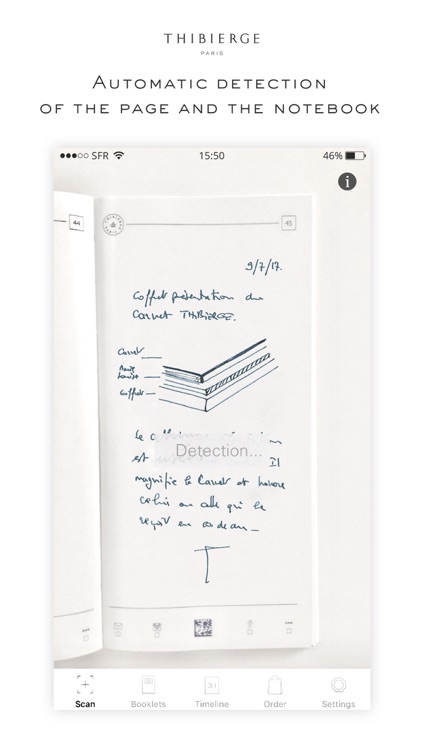 THIBIERGE
PARIS
AUTOMATIC DETECTION
OF THE PAGE AND THE NOTEBOOK
SFR 15:50 46%
i
44
THIBIERGE PARIS
45
9/7/17.
Coffret présentation du
Carnet THIBIERGE.
Carnet
Coffret
Le
est Il
Detection...
magnifie le Carnet et honore
celui ou celle qui le
reçoit en cadeau_
T
Scan Booklets Timeline Order Settings